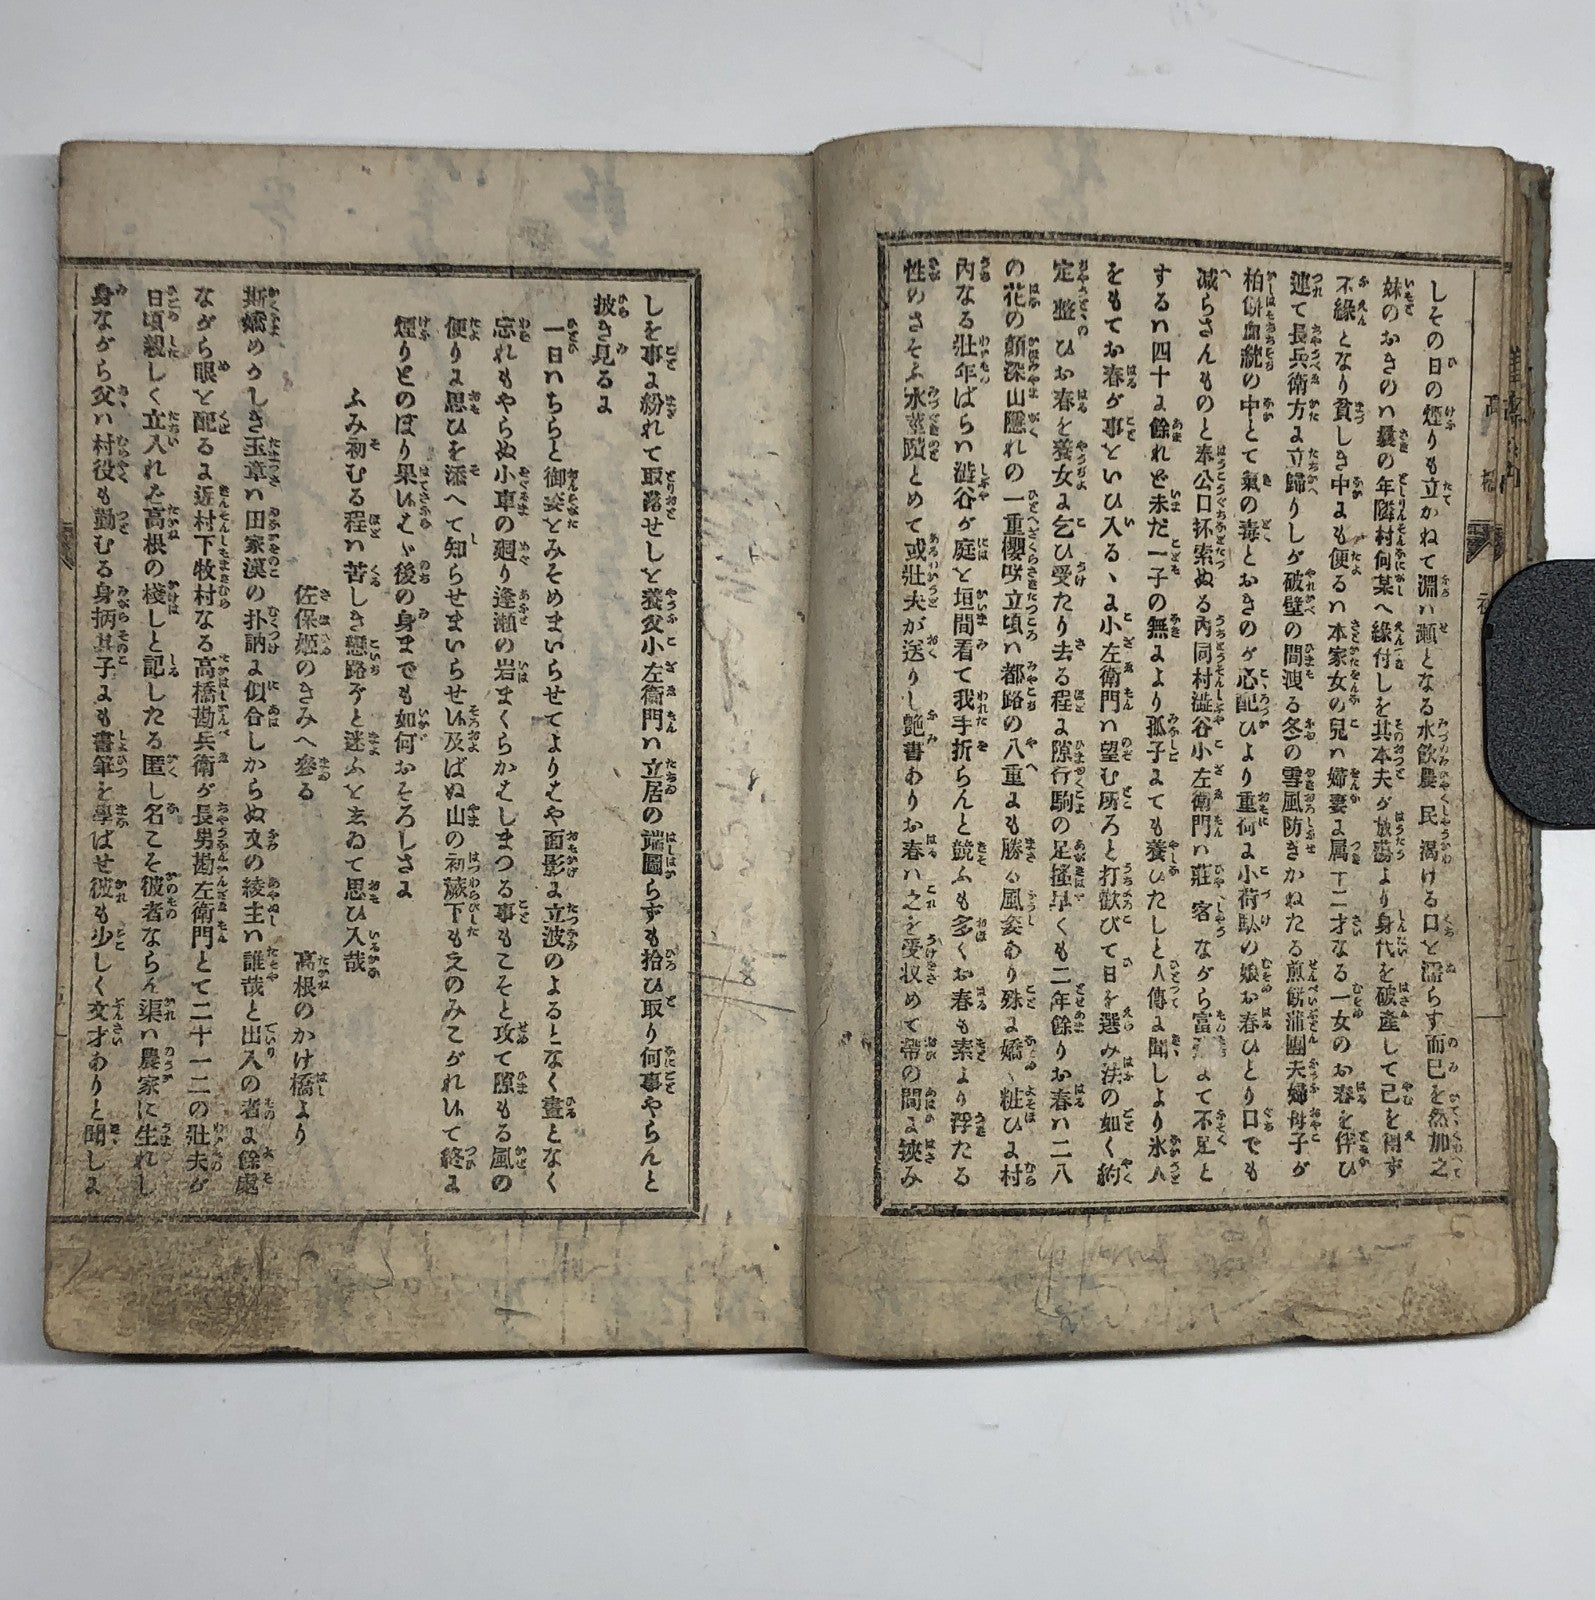 しその日の煙りも立かねて淵ハ瀬となる水飲農民渇ける口を濡らす而已を然加之
妹のおきのハ曩の年隣村何某へ縁付しを其本夫が放蕩より身代を破産して已を得ず
不縁となり貧しき中にも便るハ本家女の兒ハ婦妻に属十二才なる一女のお春を伴ひ
連て長兵衛方に立歸りしが破壁の間洩る冬の雪風防ぎかねたる煎餅蒲團夫婦母子が
柏餅血統の中とて氣の毒とおきのが心配ひより重荷に小荷駄の娘お春ひとり口でも
減らさんものと奉公口抔索ぬる内同村澁谷小左衛門ハ莊客ながら富にて不足と
するハ四十に餘れど未だ一子の無により孤子にても養ひたしと人傳に聞しより氷人
をもてお春が事をいひ入るゝに小左衛門ハ望む所ろと打歓びて日を選み法の如く約
定整ひお春を養女に乞ひ受たり去る程に隙行駒の足掻早くも二年餘りお春ハ二八
の花の顔深山隠れの一重櫻咲立頃ハ都路の八重にも勝る風姿あり殊に嬌粧ひに村
内なる壯年ばらハ澁谷が庭を垣間看て我手折らんと競ふも多くお春も素より浮たる
性のさそふ水莖蹟とめて或壯夫が送りし艶書ありお春ハ之を受収めて帶の間に狹み
しを事に紛れて取落せしを養父小左衛門ハ立居の端圖らずも拾ひ取り何事やらんと
披き見るに
一日ハちらと御姿をみそめまいらせてよりはや面影に立波のよるとなく晝となく
忘れもやらぬ小車の廻り逢瀬の岩まくらかはしまつる事もこそと攻て隙もる風の
便りに思ひを添へて知らせまいらせ候及ばぬ山の初蕨下もえのみこがれ候て終に
煙りとのぼり果候はゞ後の身までも如何おそろしさに
ふみ初むる程ハ苦しき戀路ぞと迷ふを玄ゐて思ひ入哉
佐保姫のきみへ參る
高根のかけ橋より
斯嬌めかしき玉章ハ田家漢の扑訥に似合しからぬ文の綾主ハ誰哉と出入の者に餘處
ながら眼を配るに近村下牧村なる高橋勘兵衛が長男勘左衛門とて二十一二の壯夫が
日頃親しく立入れた高根の棧しと記したる匿し名こそ彼者ならん渠ハ農家に生れし
身ながら父ハ村役も勤むる身柄其子にも書筆を學ばせ彼も少しく文才ありと聞しに